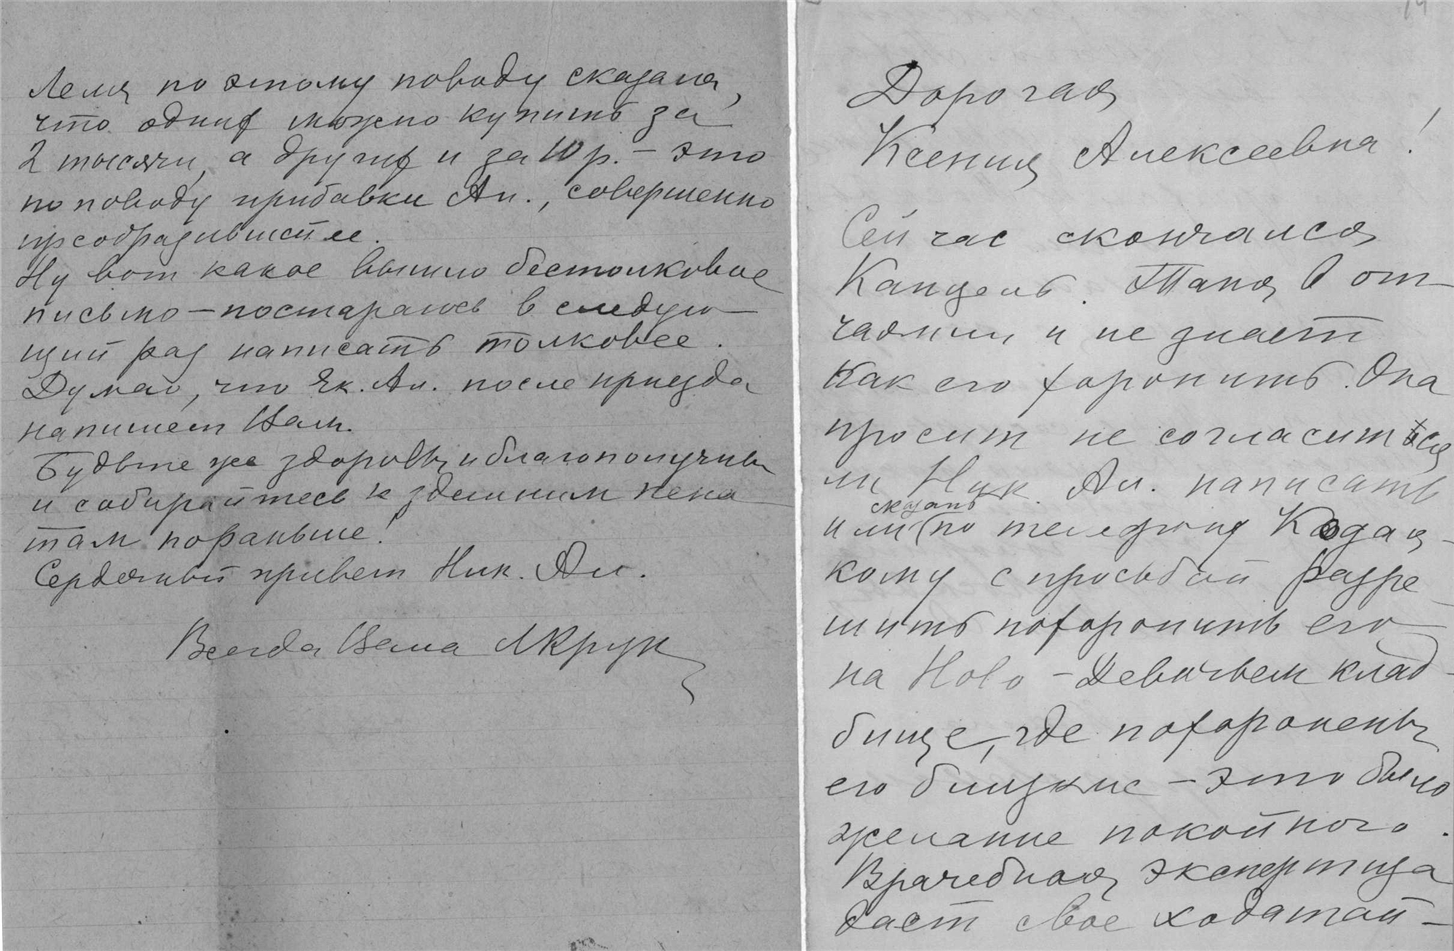 Леля по этому поводу сказала,
что одних можно купить за
2 тысячи, а других и за 10 р. – это
по поводу прибавки Ал., совершенно
преобразившей ее.
Ну вот какое вышло бестолковое
письмо – постараюсь в следую-
щий раз написать толковее.
Думаю, что Ек. Ал. после приезда
напишет Вам.
Будьте же здоровы и благополучны
и собирайтесь к здешним пена-
там пораньше!
Сердечный привет Ник. Ал.
Всегда Ваша ЛКрук
14
Дорогая
Ксения Алексеевна!
Сейчас скончался
Канцель. Таня в от-
чаянии и не знает
как его хоронить. Она
просит не согласиться
ли Ник. Ал. написать
сказать
или по телефону Кадац-
кому с просьбой разре-
шить похоронить его
на Ново-Девичьем клад-
бище, где похоронены
его близкие – это было
желание покойного.
Врачебная экспертиза
даст свое ходатай-